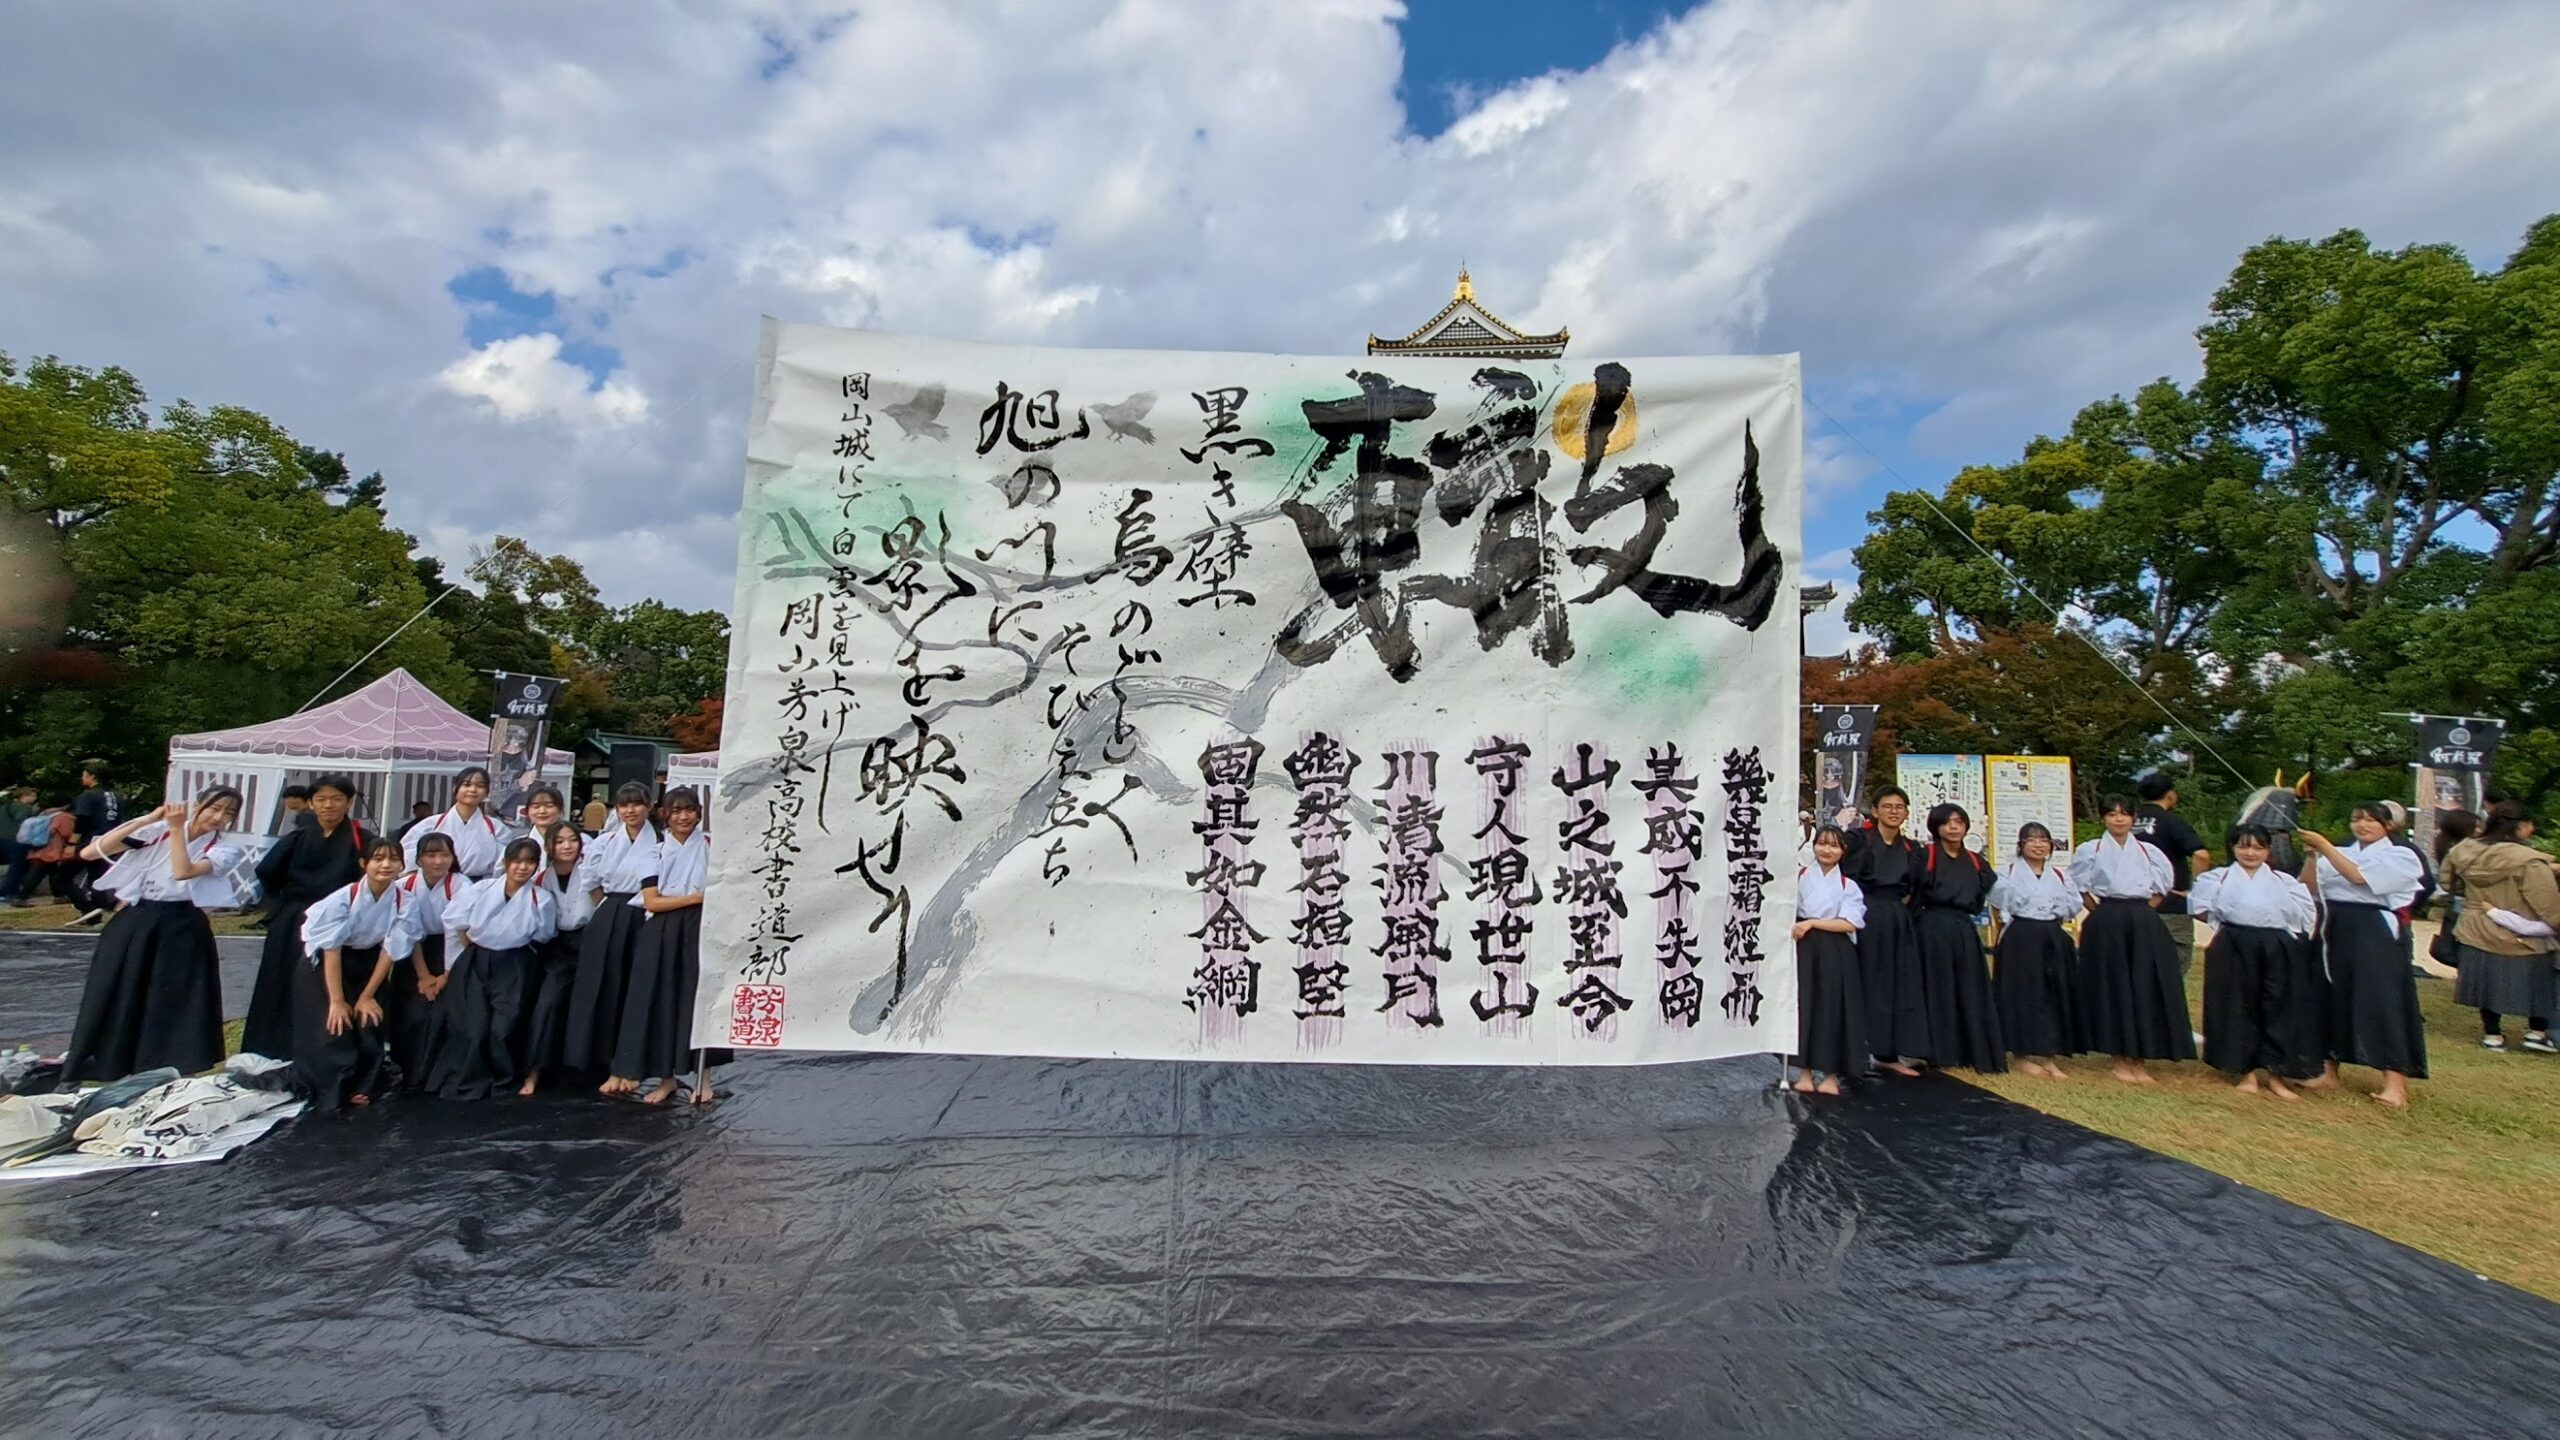 幾星霜經而
其威不失岡
山之城至今
守人現世山
川清流風月
幽然石垣堅
固其如金綱
黒き壁
烏のごとく
そびえ立ち
旭の川に
影を映せり
岡山城にて白雲を見上げし
岡山芳泉高校書道部
芳泉
書道